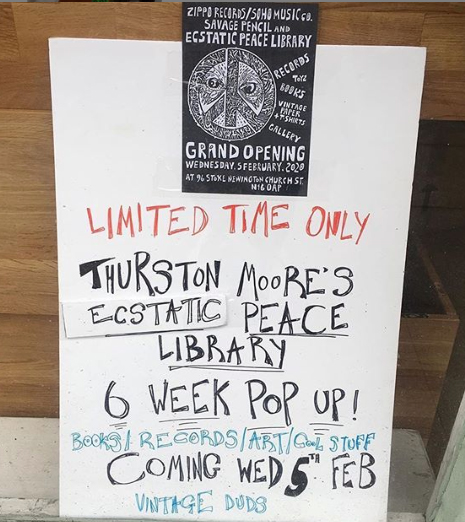 ZIPPO RECORDS/SOHO MUSIC CO.
SAVAGE PENCIL AND
ECSTATIC PEACE LIBRARY
RECORDS
TOYZ
BOOKS
VINTAGE
PAPER
+ T-SHIRTS
GALLERY
GRAND OPENING
WEDNESDAY, 5 FEBRUARY, 2020
AT 96 STOKE NEWINGTON CHURCH ST.
N16 0AP
LIMITED TIME ONLY
THURSTON MOORE'S
ECSTATIC PEACE
LIBRARY
6 WEEK POP UP!
BOOKS/RECORDS/ART/COOL STUFF
COMING WED 5TH FEB
VINTAGE DUDS